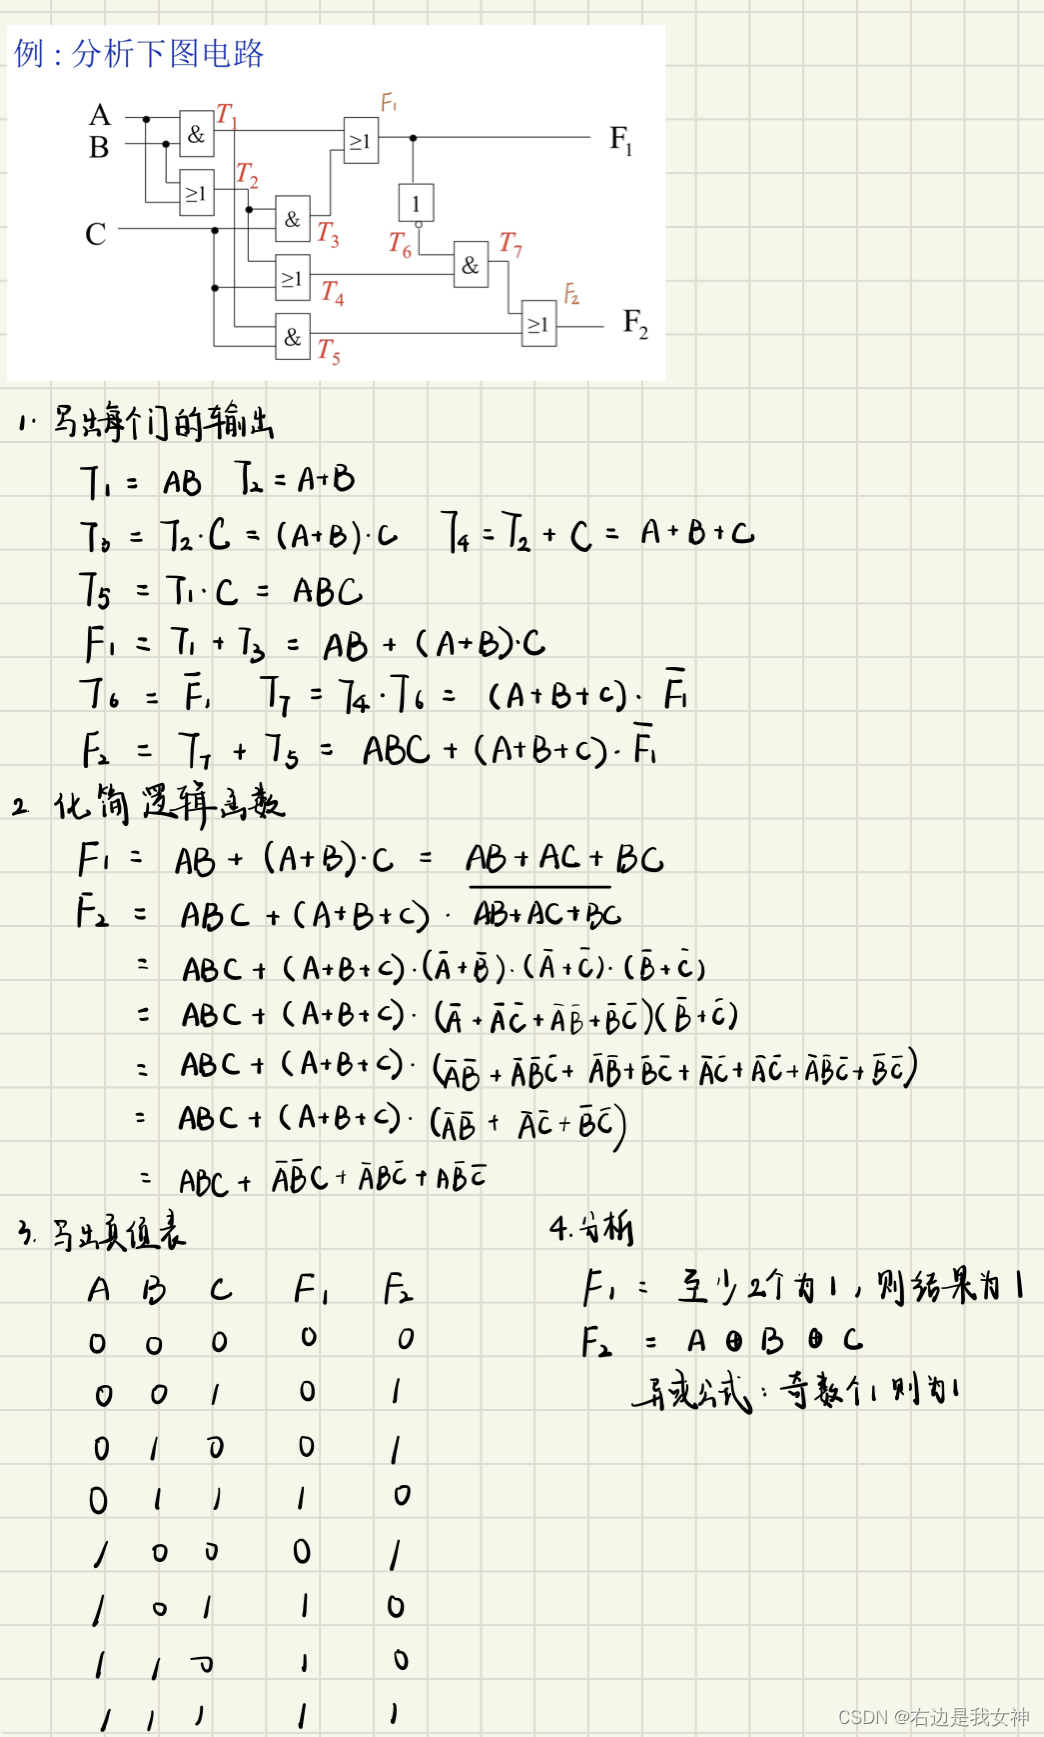 例：分析下图电路
A & T₁ ≥1 F₁ F₁
B
≥1 T₂
C & T₃ 1 T₆
≥1 T₄ & T₇
& T₅ ≥1 F₂ F₂
1. 写出每个门的输出
T₁ = AB T₂ = A+B
T₃ = T₂·C = (A+B)·C T₄ = T₂ + C = A+B+C
T₅ = T₁·C = ABC
F₁ = T₁ + T₃ = AB + (A+B)·C
T₆ = F̅₁ T₇ = T₄·T₆ = (A+B+C)·F̅₁
F₂ = T₇ + T₅ = ABC + (A+B+C)·F̅₁
2. 化简逻辑函数
F₁ = AB + (A+B)·C = AB + AC + BC
F₂ = ABC + (A+B+C)· A̅B̅+̅A̅C̅+̅B̅C̅
= ABC + (A+B+C)·(A̅+B̅)·(A̅+C̅)·(B̅+C̅)
= ABC + (A+B+C)·(A̅+A̅C̅+A̅B̅+B̅C̅)(B̅+C̅)
= ABC + (A+B+C)·(A̅B̅+A̅B̅C̅+A̅B̅+B̅C̅+A̅C̅+A̅C̅+A̅B̅C̅+B̅C̅)
= ABC + (A+B+C)·(A̅B̅ + A̅C̅ + B̅C̅)
= ABC + A̅B̅C + A̅BC̅ + AB̅C̅
3. 写出真值表
A B C F₁ F₂
0 0 0 0 0
0 0 1 0 1
0 1 0 0 1
0 1 1 1 0
1 0 0 0 1
1 0 1 1 0
1 1 0 1 0
1 1 1 1 1
4. 分析
F₁ = 至少2个为1，则结果为1
F₂ = A⊕B⊕C
异或公式：奇数个1则为1
CSDN @右边是我女神